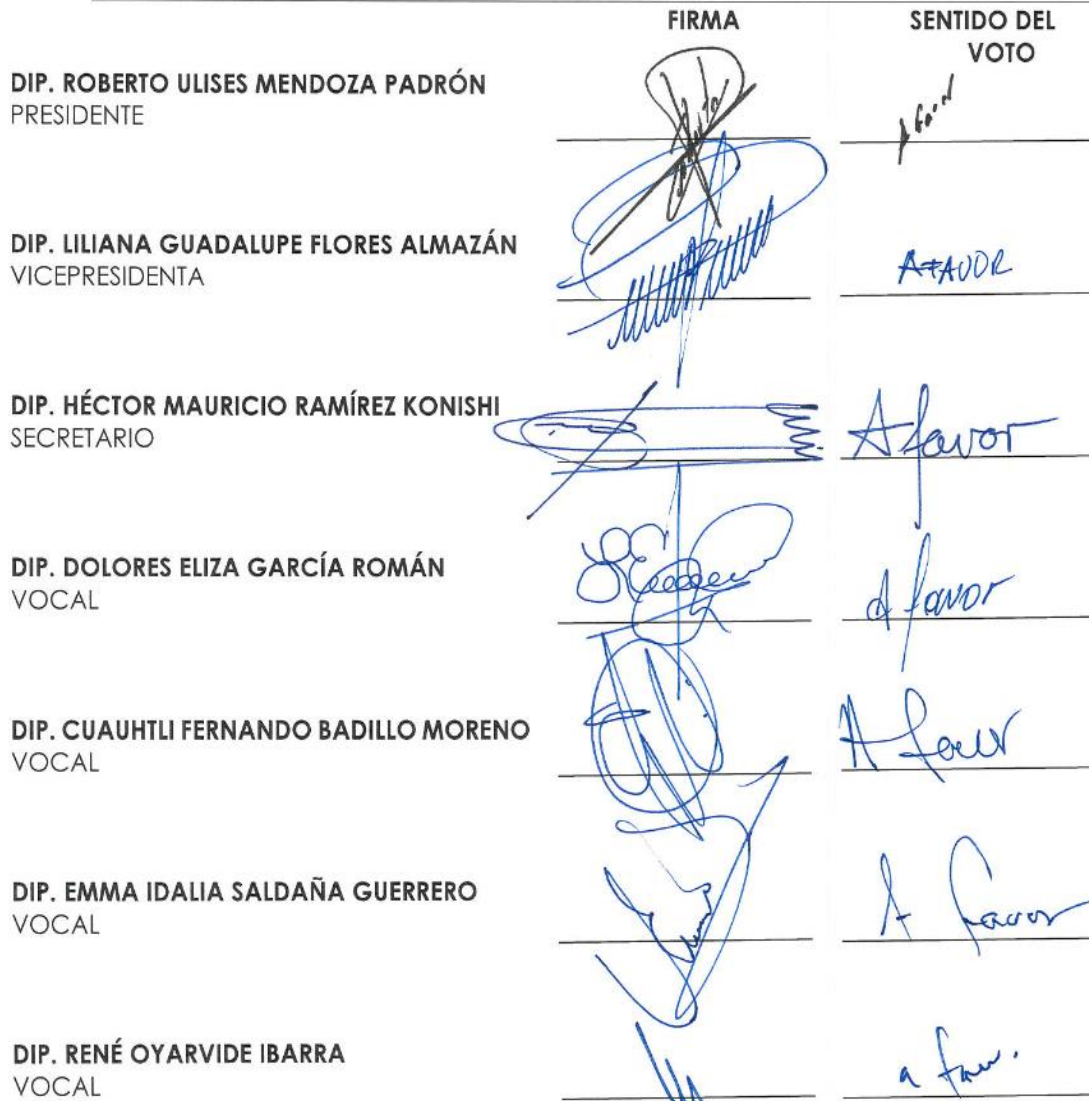 FIRMA SENTIDO DEL
VOTO
DIP. ROBERTO ULISES MENDOZA PADRÓN
PRESIDENTE
A favor
DIP. LILIANA GUADALUPE FLORES ALMAZÁN
VICEPRESIDENTA
A FAVOR
DIP. HÉCTOR MAURICIO RAMÍREZ KONISHI
SECRETARIO
A favor
DIP. DOLORES ELIZA GARCÍA ROMÁN
VOCAL
A favor
DIP. CUAUHTLI FERNANDO BADILLO MORENO
VOCAL
A favor
DIP. EMMA IDALIA SALDAÑA GUERRERO
VOCAL
A favor
DIP. RENÉ OYARVIDE IBARRA
VOCAL
a fav.